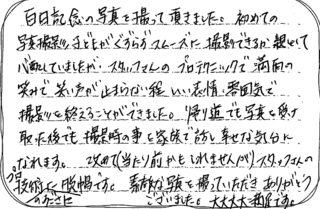 百日記念の写真を撮って頂きました。初めての
写真撮影、子どもがぐずらずスムーズに撮影できるか親として
心配していましたが、スタッフさんのプロテクニックで満面の
笑みで笑い声が止まらない程いい表情、雰囲気で
撮影を終えることができました。帰り道でも写真を受け
取った後でも撮影時の事を家族で話し幸せな気分に
なれます。改めて(当たり前かもしれませんが)スタッフさんの
プロ技術に脱帽です。素敵な写真を撮っていただきありがとう
のたさに ございました。大大大満足です。